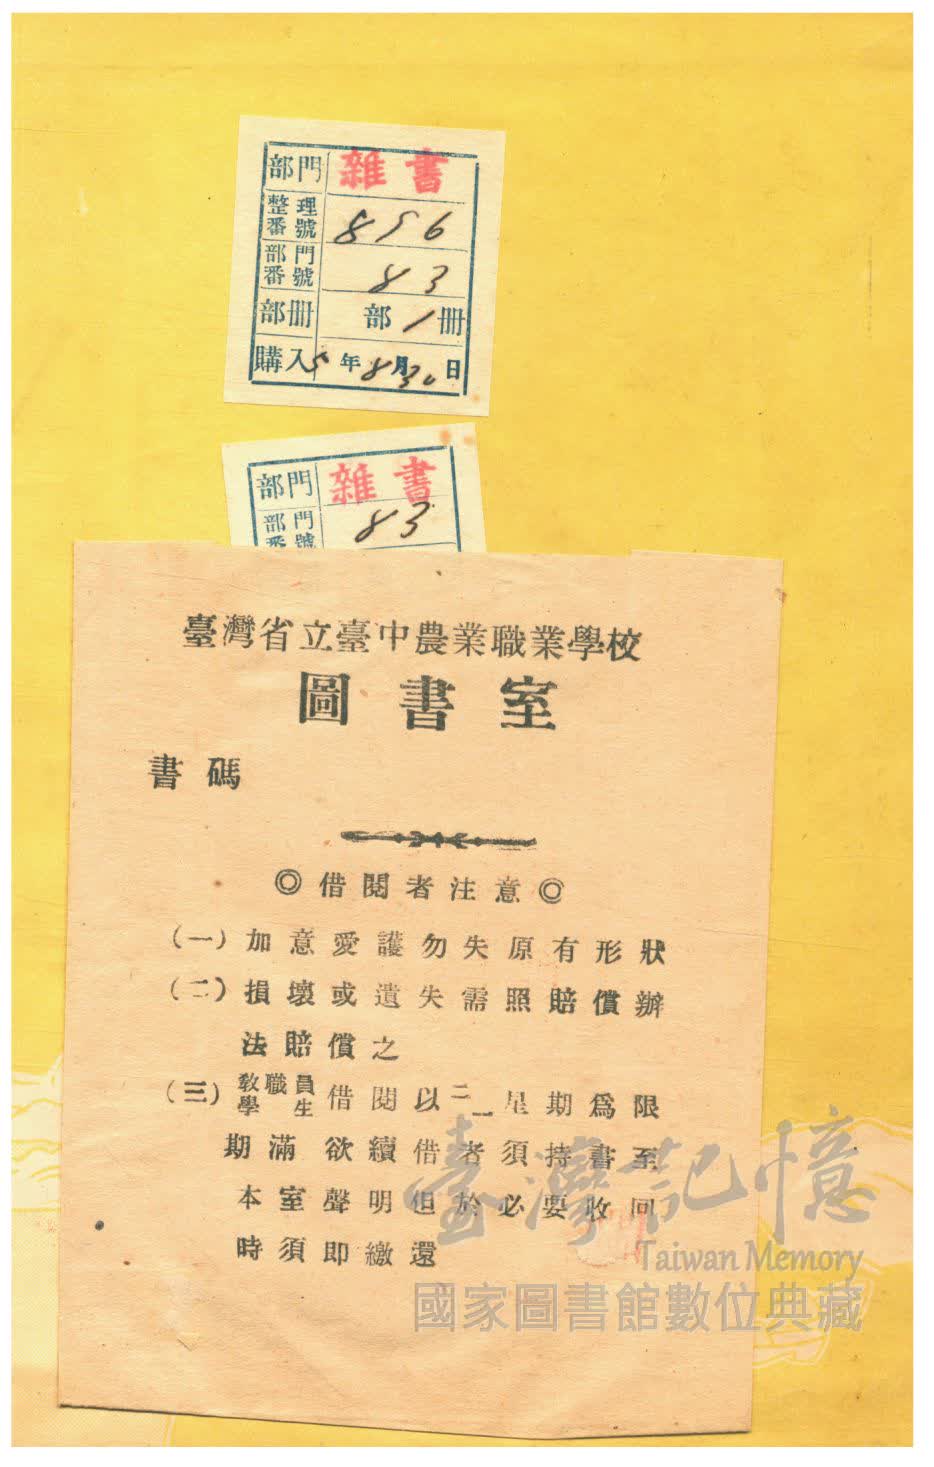 部門 雜書
整理番號 856
部門番號 83
部册 部 1 册
購入 5 年 8 月 30 日
部門 雜書
部門番號 83
臺灣省立臺中農業職業學校
圖書室
書碼
◎借閱者注意◎
(一)加意愛護勿失原有形狀
(二)損壞或遺失需照賠償辦
法賠償之
(三)教職員學生借閱以二一星期爲限
期滿欲續借者須持書至
本室聲明但於必要收回
時須即繳還
臺灣記憶
Taiwan Memory
國家圖書館數位典藏